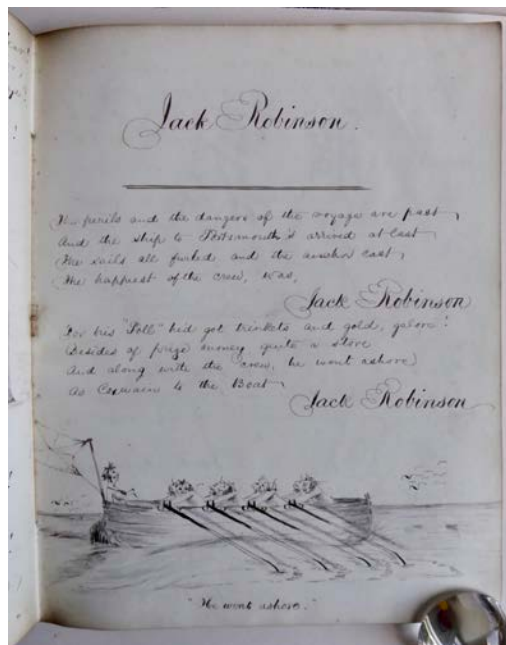 Jack Robinson.
The perils and the dangers of the voyage are past,
And the ship to Portsmouth's arrived at last,
The sails all furled and the anchor cast,
The happiest of the crew, was,
Jack Robinson
For his "Poll" he'd got trinkets and gold, galore!
Besides of prize money quite a store
And along with the crew, he went ashore
As Coxwain to the Boat,
Jack Robinson
"He went ashore."